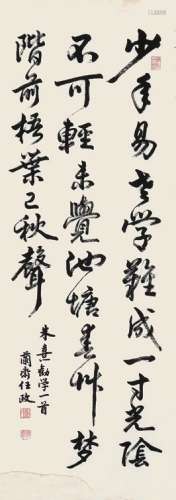 少年易老学難成一寸光陰
不可輕未覺池塘春艸梦
階前梧葉已秋聲
朱熹勸学一首
蘭齋任政